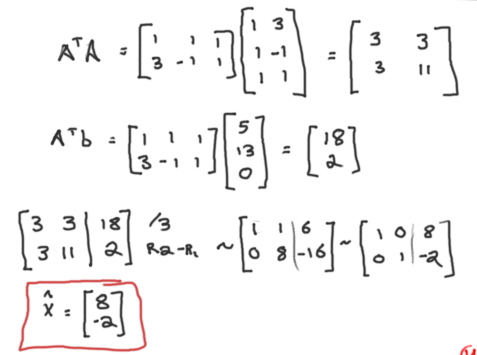 AᵀA = [1 1 1; 3 -1 1] [1 3; 1 -1; 1 1] = [3 3; 3 11]
Aᵀb = [1 1 1; 3 -1 1] [5; 13; 0] = [18; 2]
[3 3 | 18; 3 11 | 2] /3 R2-R1 ~ [1 1 | 6; 0 8 | -16] ~ [1 0 | 8; 0 1 | -2]
x̂ = [8; -2]